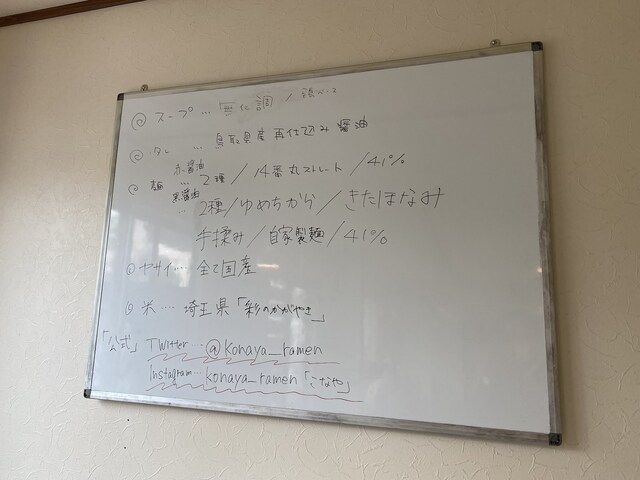 ◎ スープ … 無化調 / 鶏ベース
◎ タレ … 鳥取県産再仕込み醤油
◎ 麺 赤醤油 … 2種 / 14番丸ストレート / 41%
黒醤油 … 2種 / ゆめちから / きたほなみ
手揉み / 自家製麺 / 41%
◎ ヤサイ … 全て国産
◎ 米 … 埼玉県「彩のかがやき」
「公式」 Twitter … @Konaya_ramen
Instagram … konaya_ramen「こなや」